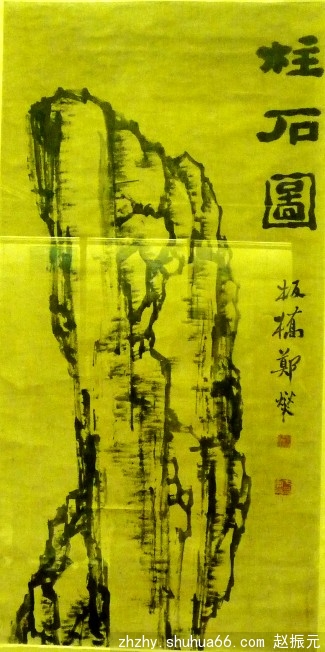 柱石圖
板橋鄭燮
zhzhy.shuhua66.com 赵振元